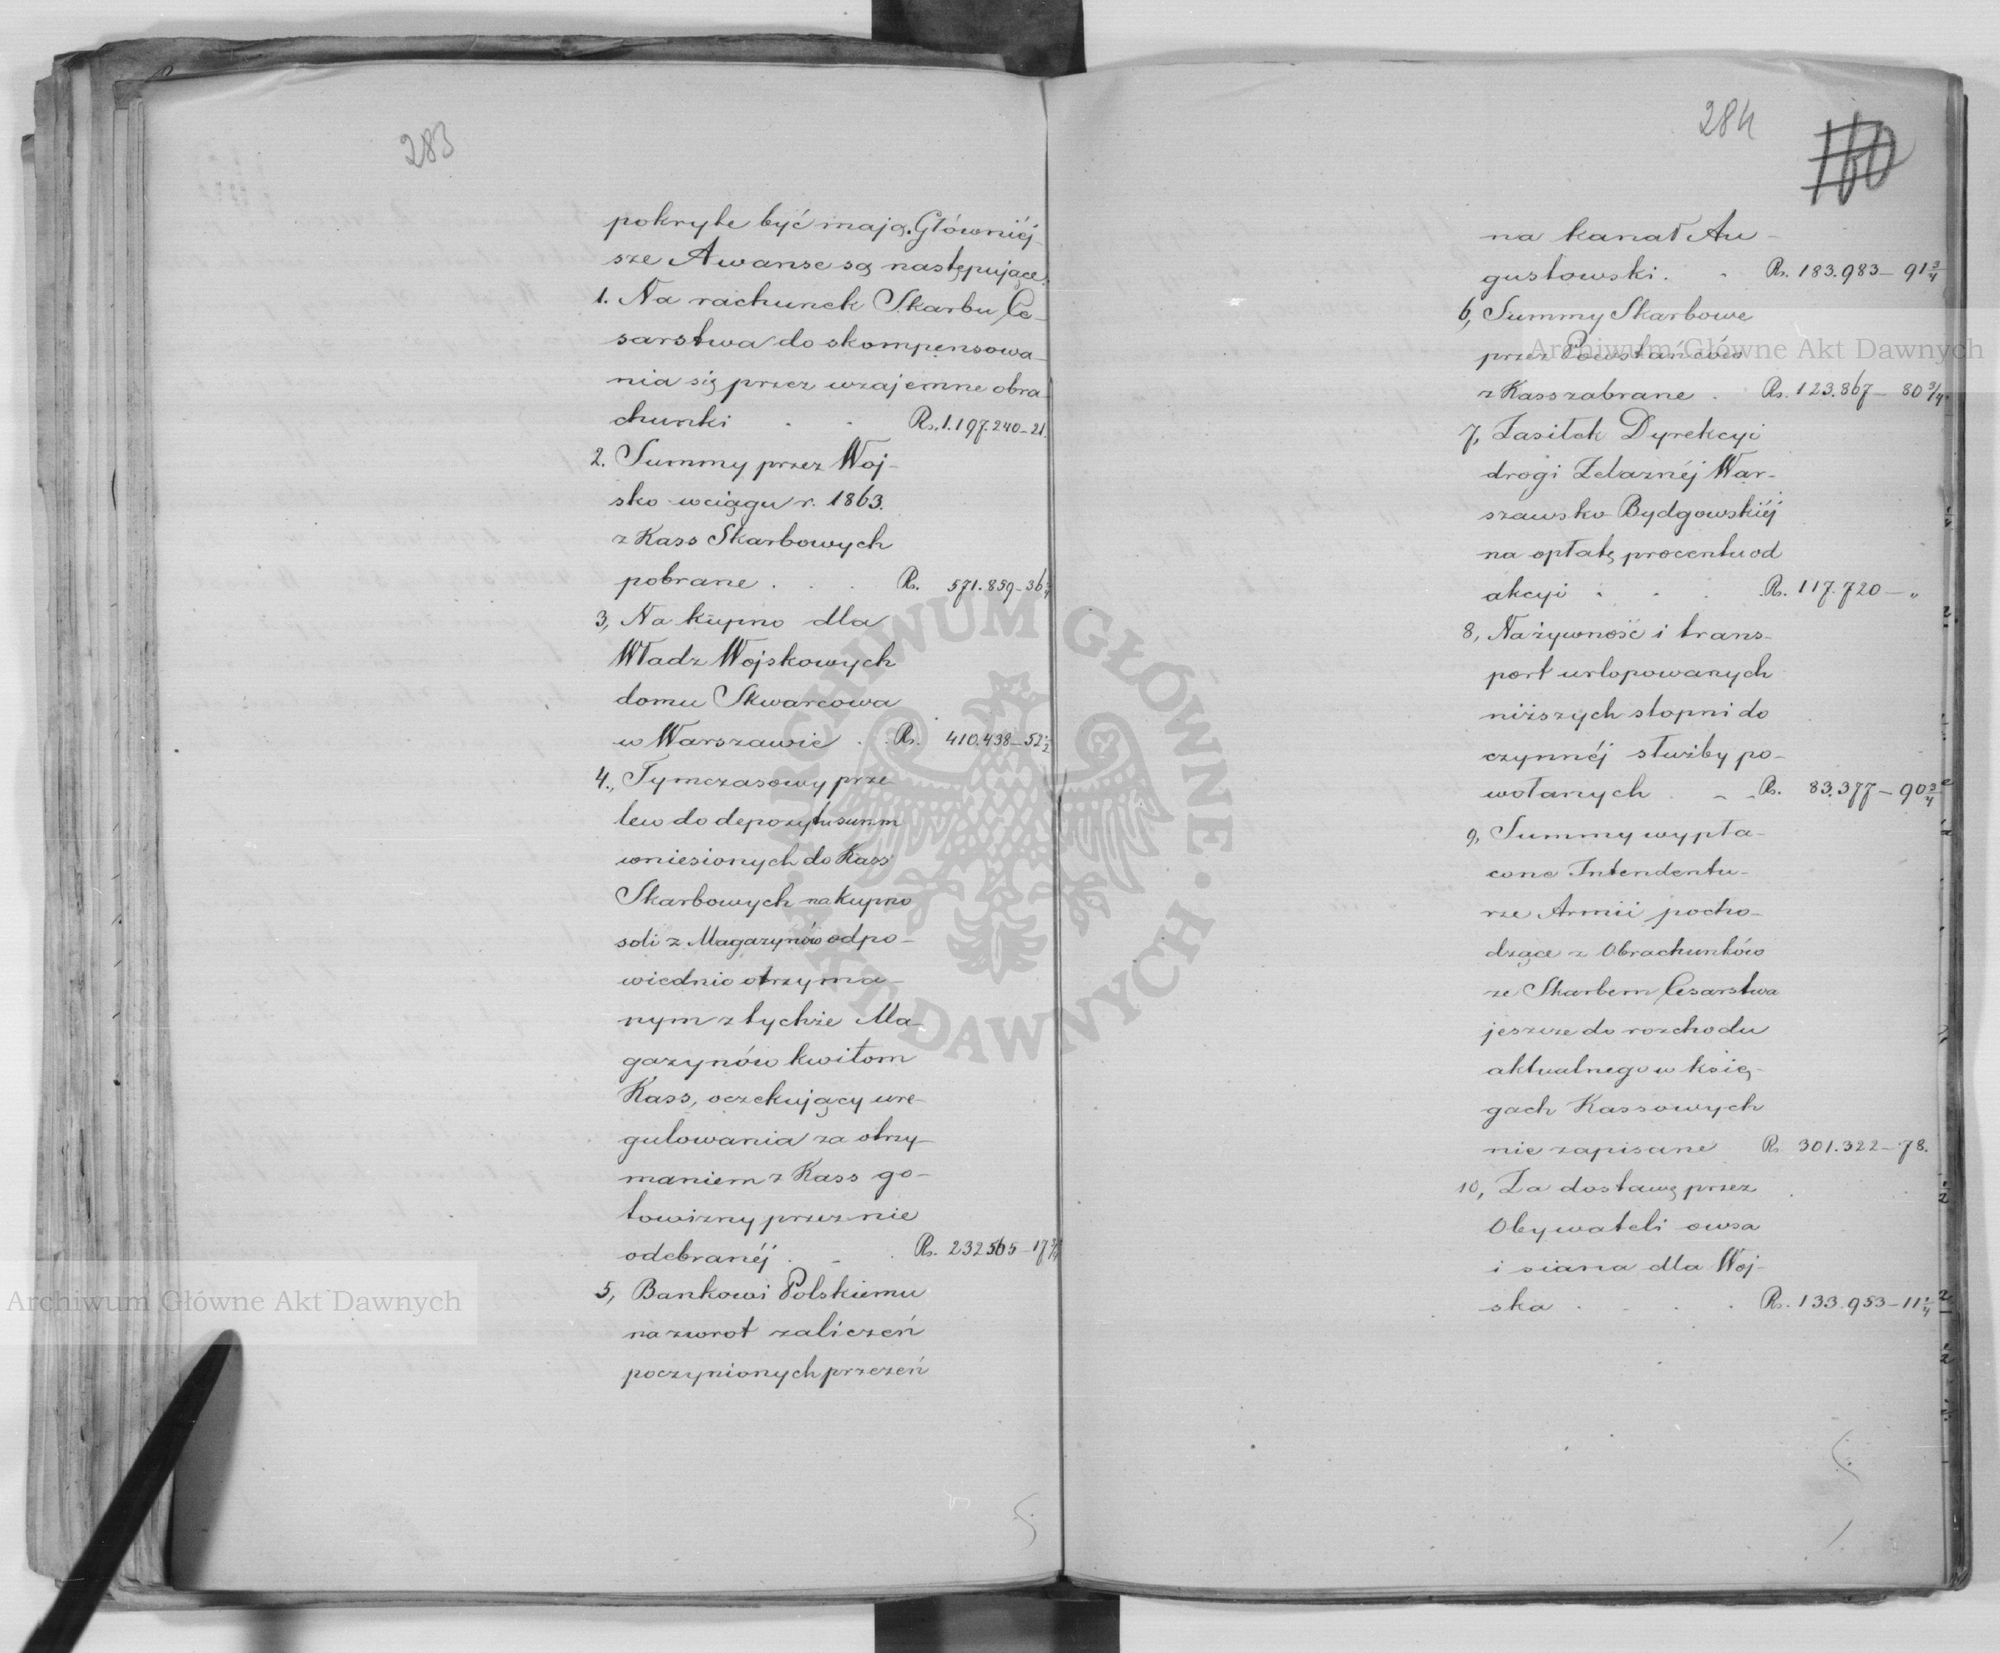 283
pokryte być mają. Główniéj-
sze Awanse są następujące:
1. Na rachunek Skarbu Ce-
sarstwa do skompensowa-
nia się przez wzajemne obra-
chunki . . Rs. 1.197.240-21.
2. Summy przez Woj-
sko wciągu r. 1863.
z Kass Skarbowych
pobrane . . . Rs. 571.859-36 3/4
3, Na kupno dla
Władz Wojskowych
domu Skwarcowa
w Warszawie . . Rs. 410.438-52 1/2
4., Tymczasowy prze-
lew do depozytu summ
wniesionych do Kass
Skarbowych na kupno
soli z Magazynów odpo-
wiednio otrzyma-
nym z tychże Ma-
gazynów kwitom
Kass, oczekujący ure-
gulowania za otrzy-
maniem z Kass go-
towizny przez nie
odebranéj . . . Rs. 232565-17 3/4
5, Bankowi Polskiemu
na zwrot zaliczeń
poczynionych przezeń
284
160
na kanał Au-
gustowski. . Rs. 183.983-91 3/4
6, Summy Skarbowe
przez Powstańców
z Kass zabrane . Rs. 123.867-80 3/4
7, Zasiłek Dyrekcyi
drogi Żelaznéj War-
szawsko Bydgowskiéj
na opłatę procentu od
akcyi . . . Rs. 117.720-„
8, Na żywność i trans-
port urlopowanych
niższych stopni do
czynnéj służby po-
wołanych . - - Rs. 83.377-90 3/4
9, Summy wypła-
cone Intendentu-
rze Armii pocho-
dzące z Obrachunków
ze Skarbem Cesarstwa
jeszcze do rozchodu
aktualnego w księ-
gach Kassowych
nie zapisane Rs 301.322-78.
10, Za dostawę przez
Obywateli owsa
i siana dla Woj-
ska . . . . Rs. 133.953-11 1/4
Archiwum Główne Akt Dawnych
Archiwum Główne Akt Dawnych
ARCHIWUM GŁÓWNE · AKT DAWNYCH ·